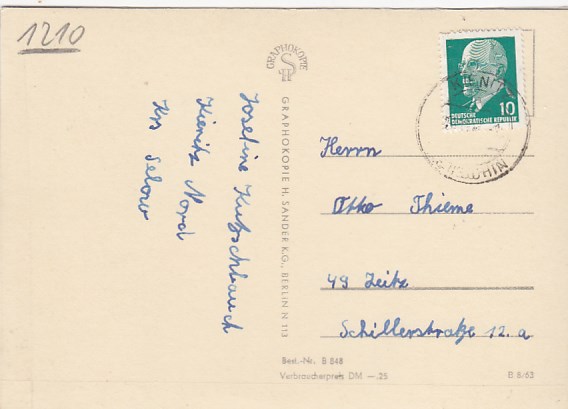 1210
Josefine Kutzschbauch
Kienitz Nord
Krs Selow
GRAPHOKOPIE
H
GRAPHOKOPIE H. SANDER K.G., BERLIN N 113
10
DEUTSCHE
DEMOKRATISCHE REPUBLIK
Herrn
Otto Thieme
49 Zeitz
Schillerstraße 12. a
Best.-Nr. B 848
Verbraucherpreis DM —.25
B 8/63